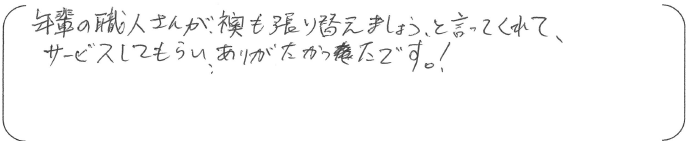 年輩の職人さんが、襖も張り替えましょう、と言ってくれて、
サービスしてもらい、ありがたかったです。!